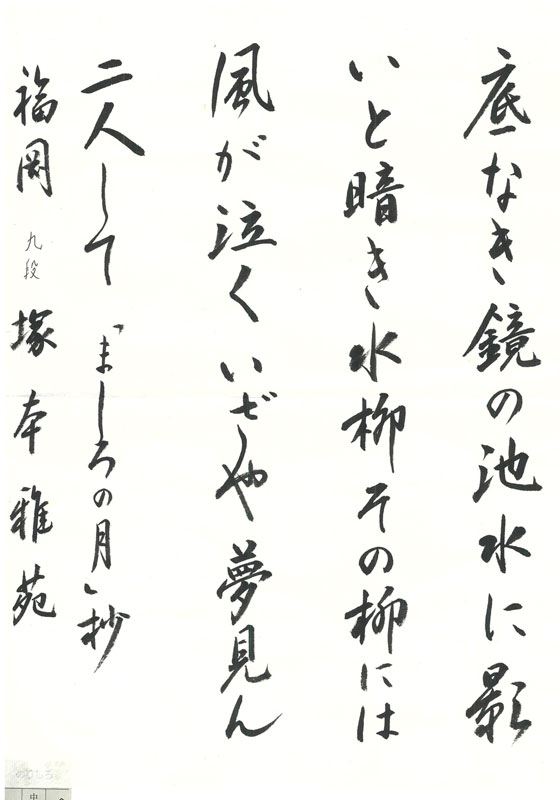 底なき鏡の池水に影
いと暗き水柳その柳には
風が泣くいざや夢見ん
二人して「ましろの月」抄
福岡 九段 塚本雅苑
中